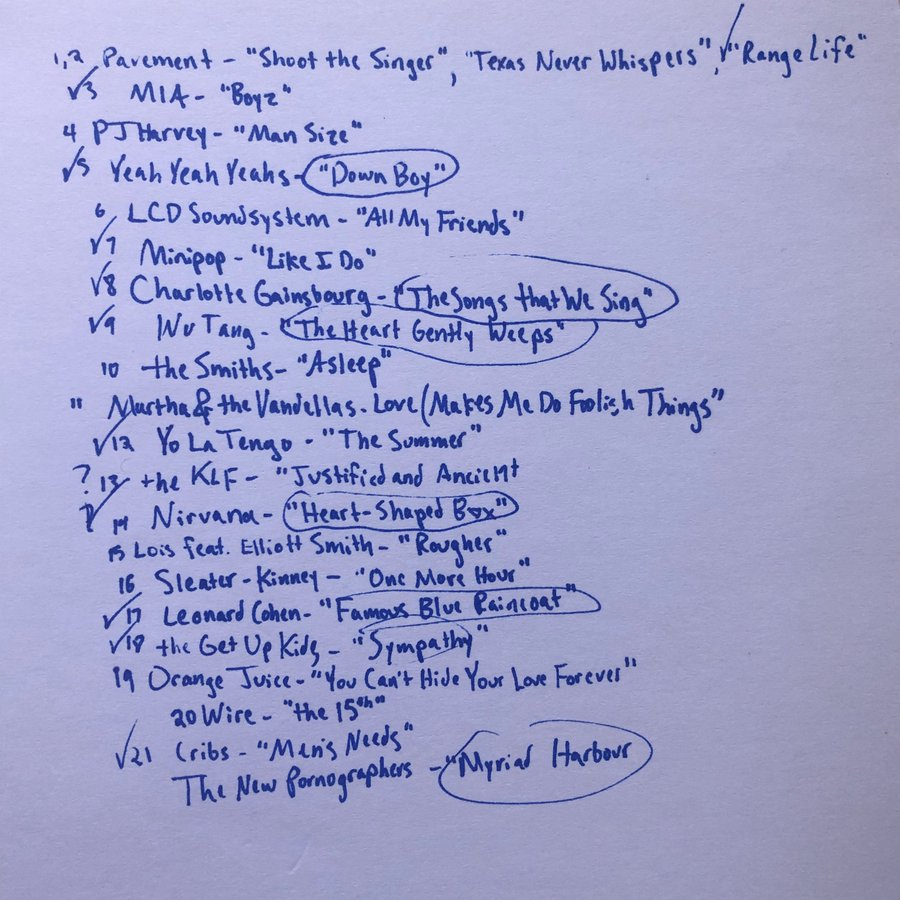 1,2 Pavement - "Shoot the Singer", "Texas Never Whispers", ✓"Range Life"
✓3 MIA - "Boyz"
4 PJ Harvey - "Man Size"
✓5 Yeah Yeah Yeahs - "Down Boy"
6 LCD Soundsystem - "All My Friends"
✓7 Minipop - "Like I Do"
✓8 Charlotte Gainsbourg - "The Songs that We Sing"
✓9 Wu Tang - "The Heart Gently Weeps"
10 the Smiths - "Asleep"
11 Martha & the Vandellas - Love (Makes Me Do Foolish Things"
✓12 Yo La Tengo - "The Summer"
? 13 the KLF - "Justified and Ancient
✓ 14 Nirvana - "Heart-Shaped Box"
15 Lois feat. Elliott Smith - "Rougher"
16 Sleater-Kinney - "One More Hour"
✓17 Leonard Cohen - "Famous Blue Raincoat"
✓18 the Get Up Kids - "Sympathy"
19 Orange Juice - "You Can't Hide Your Love Forever"
20 Wire - "the 15th"
✓21 Cribs - "Men's Needs"
The New Pornographers - "Myriad Harbour